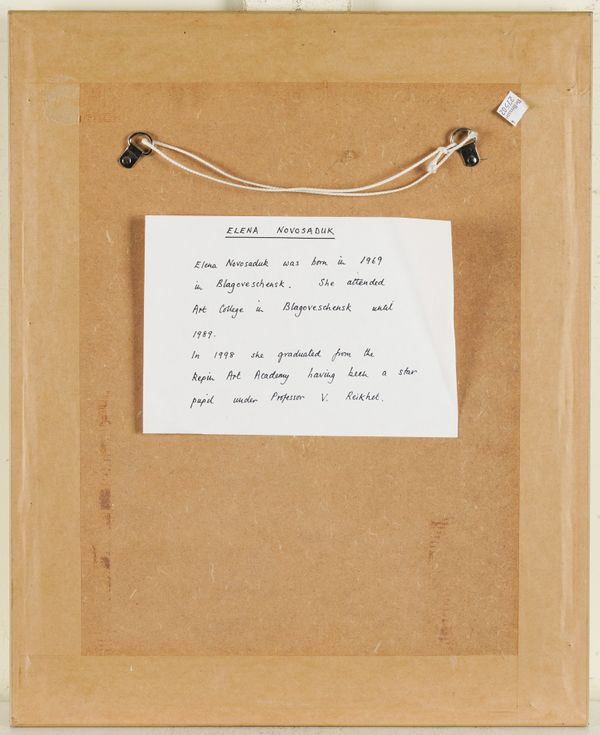 ELENA NOVOSADUK
Elena Novosaduk was born in 1969
in Blagoveschensk. She attended
Art College in Blagoveschensk until
1989.
In 1998 she graduated from the
Repin Art Academy having been a star
pupil under Professor V. Reikhet.